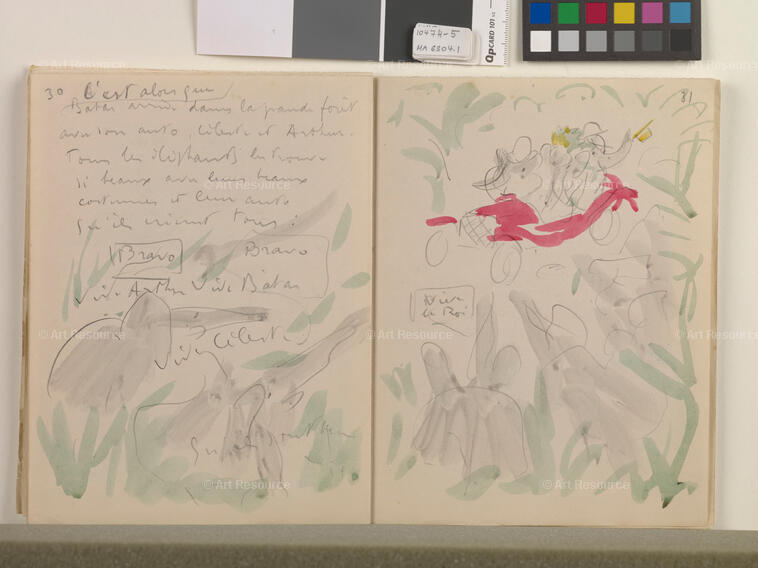 10474-5
MA 6304.1
QPCARD 101 v2
30 C'est alors que
Babar arrive dans la grande forêt
avec son auto, Céleste et Arthur.
Tous les éléphants les trouvent
si beaux avec leurs beaux
costumes et leur auto
qu'ils crient tous :
Bravo Bravo
Vive Arthur Vive Babar
Vive Céleste
31
Vive
le Roi
© Art Resource
© Art Resource
© Art Resource
© Art Resource
© Art Resource
© Art Resource
© Art Resource
© Art Resource
© Art Resource
© Art Resource
© Art Resource